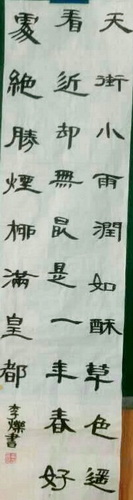 天街小雨潤如酥草色遥
看近却無最是一年春好
處絶勝煙柳滿皇都
李爍書